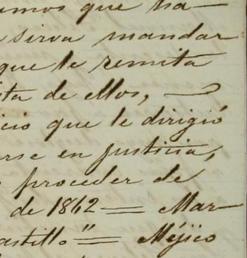 imos que ha-
sirva mandar
que le remita
sta de ellos,
cio que le dirigió
rse en justicia,
proceder de
de 1862 = Mar-
astillo" = Méjico